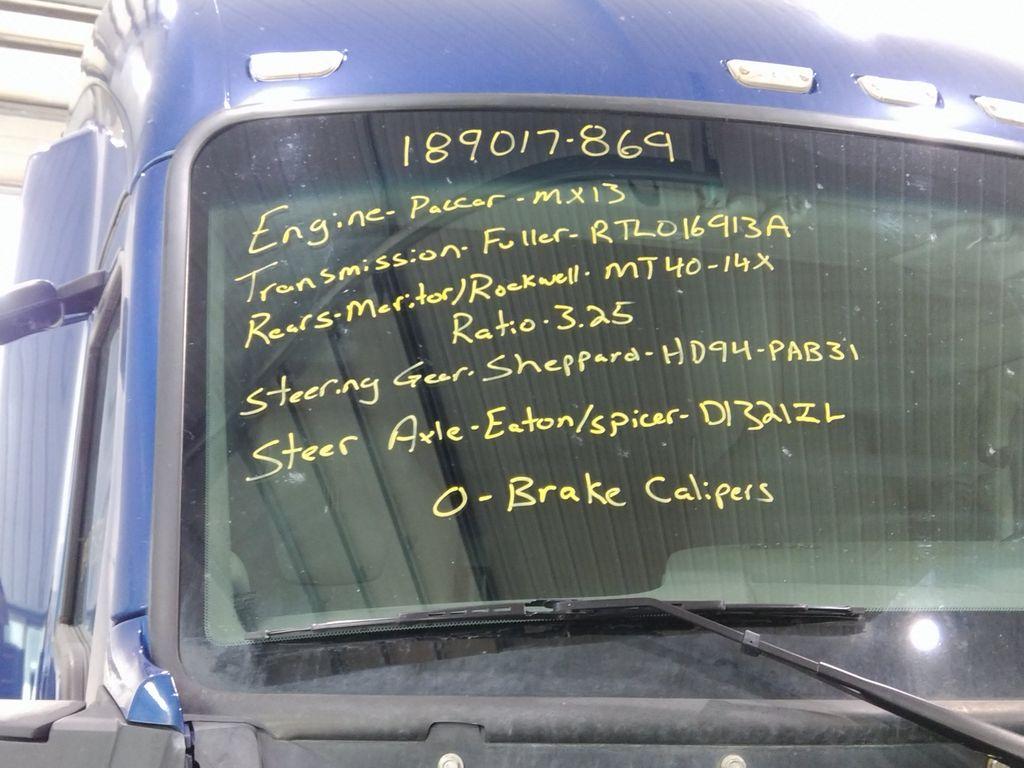 189017-869
Engine- Paccar - MX13
Transmission- Fuller- RTLO16913A
Rears-Meritor/Rockwell- MT40-14X
Ratio-3.25
Steering Gear-Sheppard-HD94-PAB31
Steer Axle-Eaton/spicer-D1321IL
0-Brake Calipers